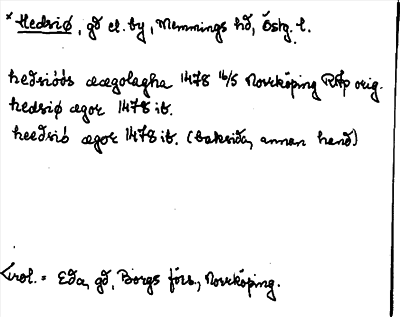 * Hedsiø, gd el. by, Memmings hd, Östg. l.
hedsiöös æægolagha 1478 16/5 Norrköping RAp orig.
hedsiø ægor 1478 ib.
heedsiö ægor 1478 ib. (baksida, annan hand)
= Eda, gd, Borgs förs., Norrköping.